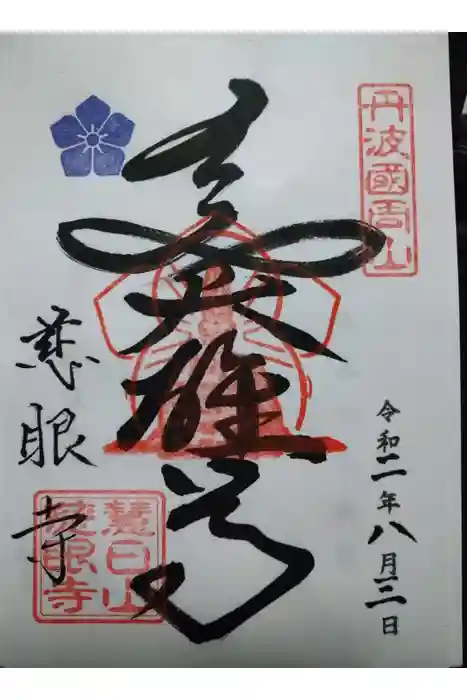 丹波國周山
大雄尊
令和二年八月三日
慈眼寺
慧日山
慈眼寺